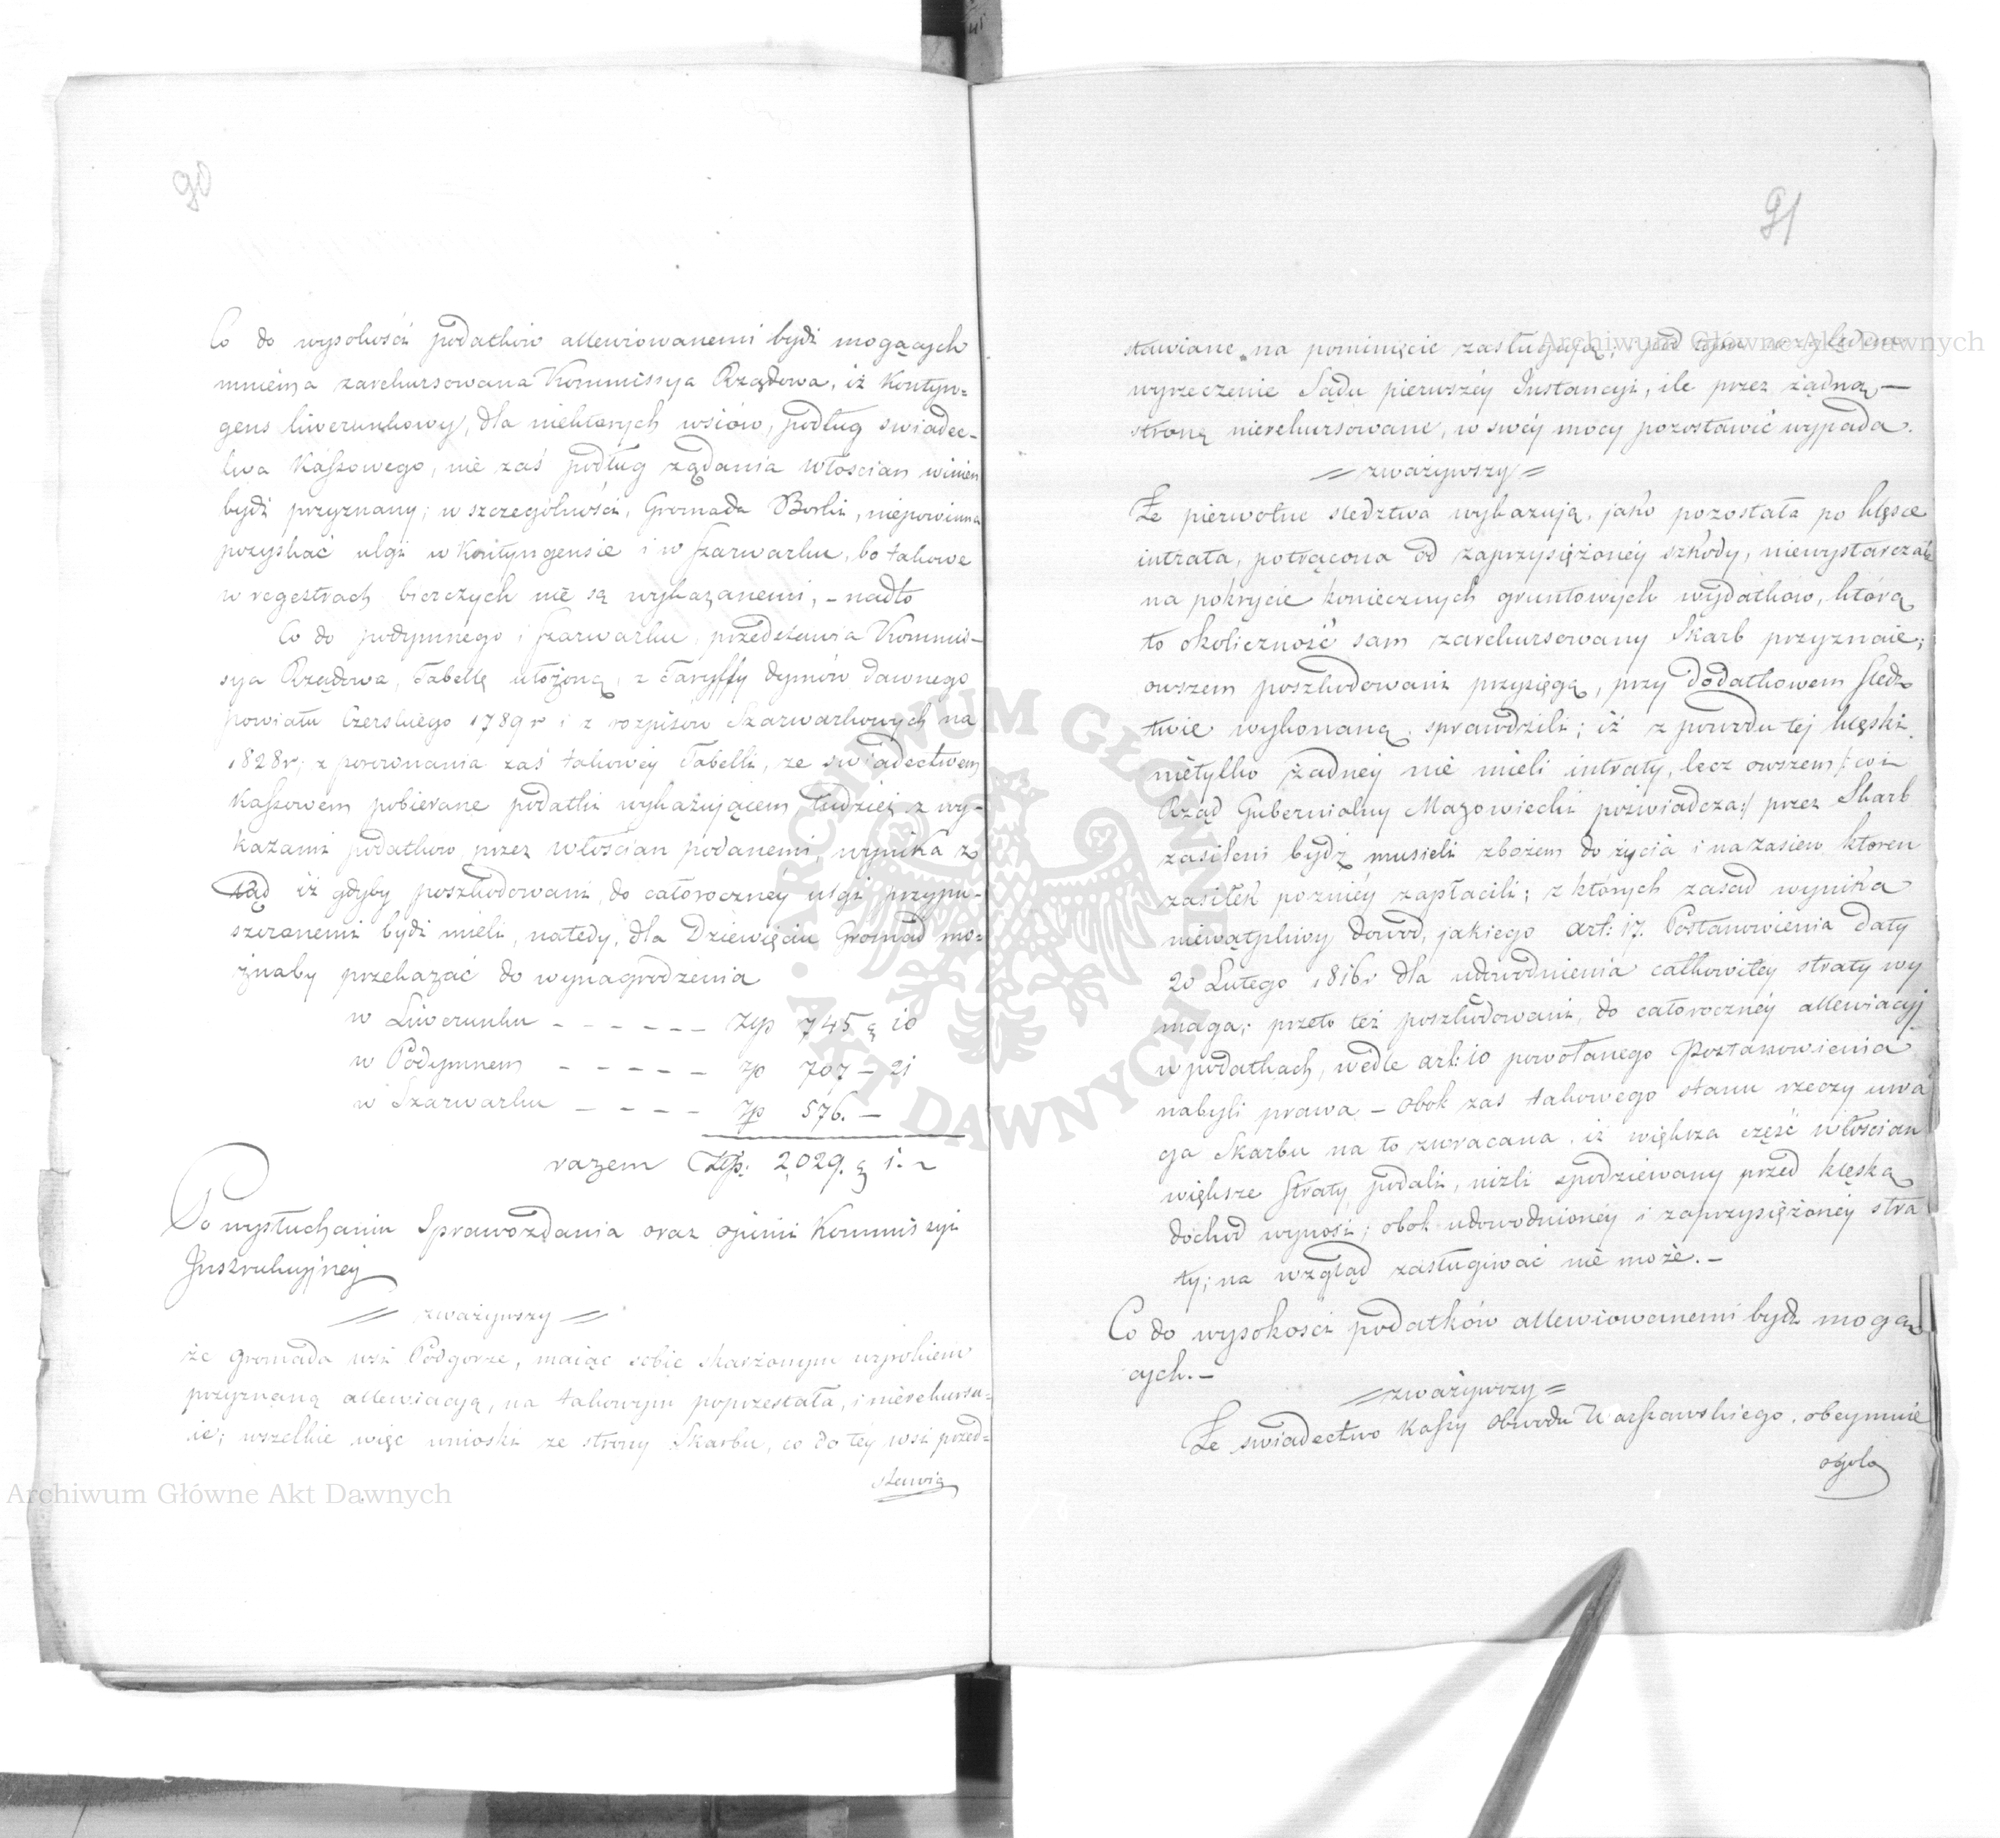 90
Co do wysokości podatków allewiowanemi bydź mogących
mniema zarekursowana Kommissya Rządowa, iż Kontyn-
gens liwerunkowy, dla niektórych wsiów, podług swiadec-
twa Kassowego, nie zaś podług ządania włoscian winien
bydź przyznany; w szczególności, Gromada Borki, niepowinna
pozyskać ulgi w Kontyngensie i w szarwarku, bo takowe
w regestrach bierczych nie są wykazanemi, - nadto
Co do podymnego i szarwarku, przedstawia Kommis-
sya Rządowa, Tabellę ułożoną, z Taryffy dymów dawnego
powiatu Czerskiego 1789 r i z rozpisow Szarwarkowych na
1828 r; z porownania zaś takowéy Tabelli, ze swiadectwem
Kassowem pobierane podatki wykazującem tudzież z wy-
kazami podatkow przez włoscian podanemi, wynika z
tąd iż gdyby poszkodowani, do całoroczney ulgi przypu-
szczonemi bydź mieli, natedy, dla Dziewięciu Gromad mo-
żnaby przekazać do wynagrodzenia
w Liwerunku - - - - - - złp 745 g 10
w Podymnem - - - - - zp 707 - 21
w Szarwarku - - - - zp 576. -
razem Złp: 2,029. g 1. -
Po wysłuchaniu Sprawozdania oraz opinii Kommissyi
Instrukcyjney
= zważywszy =
że gromada wsi Podgorze, maiąc sobie skarżonym wyrokiem
przyznaną allewiacyą, na takowym poprzestała, i nierekursu-
ie; wszelkie więc wnioski ze strony Skarbu, co do téy wsi przed-
stawia
91
stawiane na pominięcie zasługują; pod tym względem
wyrzeczenie Sądu pierwszéy Instancyi, ile przez żądną -
stronę nierekursowane, w swéy mocy pozostawić wypada.
= zważywszy =
Że pierwotne sledztwa wykazują, jako pozostała po klęsce
intrata, potrącona od zaprzysiężonéy szkody, niewystarczała
na pokrycie koniecznych gruntowych wydatków, którą
to okoliczność sam zarekursowany Skarb przyznaie;
owszem poszkodowani przysięgą, przy dodatkowem sledz-
twie wykonaną, sprawdzili; iż z powodu tej klęski,
nietylko żadnéy nie mieli intraty, lecz owszem /:co i
Rząd Gubernialny Mazowiecki poświadcza:/ przez Skarb
zasileni bydź musieli zbożem do życia i na zasiew ktoren
zasiłek poznićy zapłacili; z których zasad wynika
niewątpliwy dowod, jakiego art: 17. Postanowienia daty
20 Lutego 1816 r dla udowodnienia całkowitey straty wy
maga; przeto też poszkodowani, do całorocznéy allewiacyj
w podatkach, wedle art: 10 powołanego Postanowienia
nabyli prawa - obok zas takowego stanu rzeczy uwa
ga Skarbu na to zwracana, iż większa część włościan
większe straty podali, niżli spodziewany przed klęską
dochod wynosi; obok udowodnionéy i zaprzysiężonéy stra
ty; na wzgląd zasługiwać nie może. -
Co do wysokości podatków allewiowanemi bydź mogą-
cych. -
= zważywszy =
Że swiadectwo Kassy obwodu Warszawskiego, obeymuie
ogola
Archiwum Główne Akt Dawnych
Archiwum Główne Akt Dawnych
ARCHIWUM GŁÓWNE • AKT DAWNYCH •